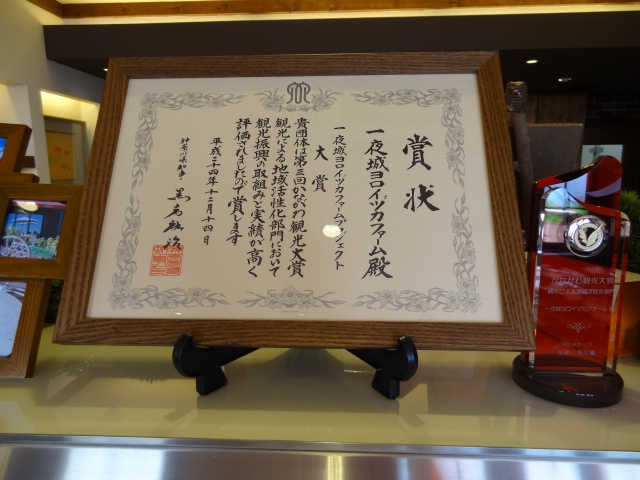 賞状
一夜城ヨロイヅカファーム殿
一夜城ヨロイヅカファームプロジェクト
大賞
貴団体は第三回かながわ観光大賞
観光による地域活性化部門において
観光振興の取組みと実績が高く
評価されましたので賞します
平成二十四年十二月十四日
神奈川県知事 黒岩祐治
かながわ観光大賞
観光による地域活性化部門